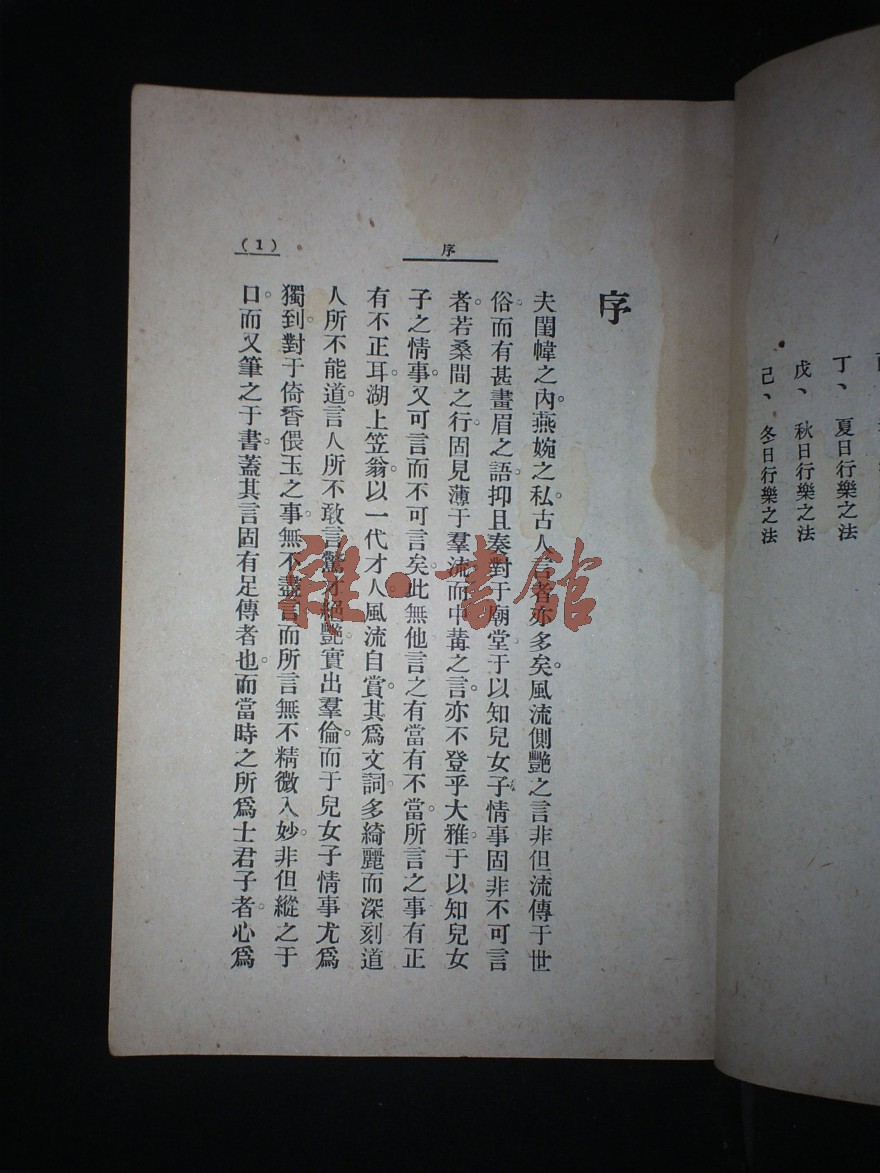 丁、夏日行樂之法
戊、秋日行樂之法
己、冬日行樂之法
序
(1)
序
夫閨幃之內。燕婉之私。古人言者亦多矣。風流側艷之言非但流傳于世
俗。而有甚畫眉之語。抑且奏對于廟堂。于以知兒女子情事固非不可言
者。若桑間之行。固見薄于羣流。而中冓之言。亦不登乎大雅。于以知兒女
子之情事。又可言而不可言矣。此無他言之有當有不當。所言之事有正
有不正耳。湖上笠翁。以一代才人。風流自賞。其爲文詞。多綺麗而深刻。道
人所不能道。言人所不敢言。驚才絕艷。實出羣倫。而于兒女子情事尤爲
獨到。對于倚香偎玉之事。無不盡言。而所言無不精微入妙。非但縱之于
口。而又筆之于書。蓋其言固有足傳者也。而當時之所爲士君子者。心爲
雜·書館